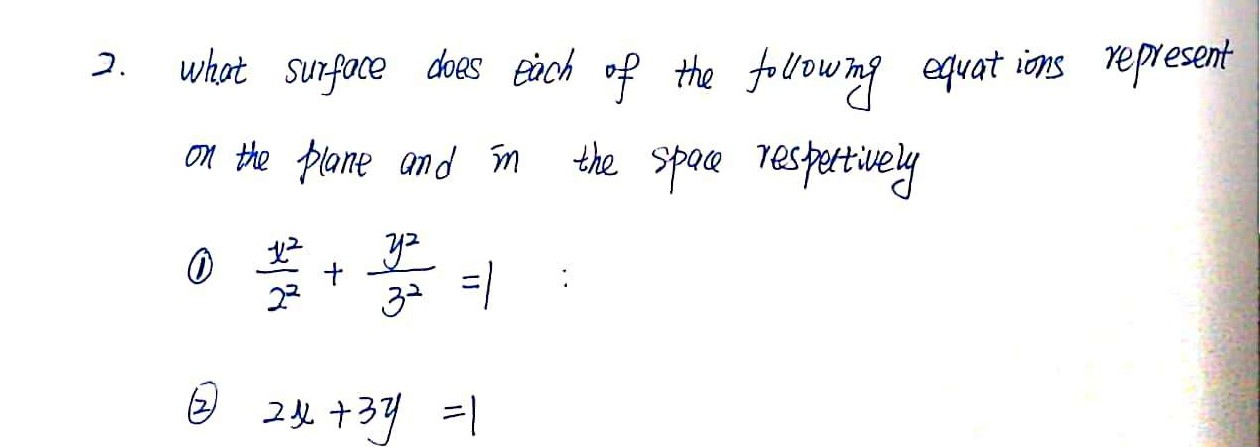 2. what surface does each of the following equations represent
on the plane and in the space respectively
① x²/2² + y²/3² = 1 :
② 2x + 3y = 1